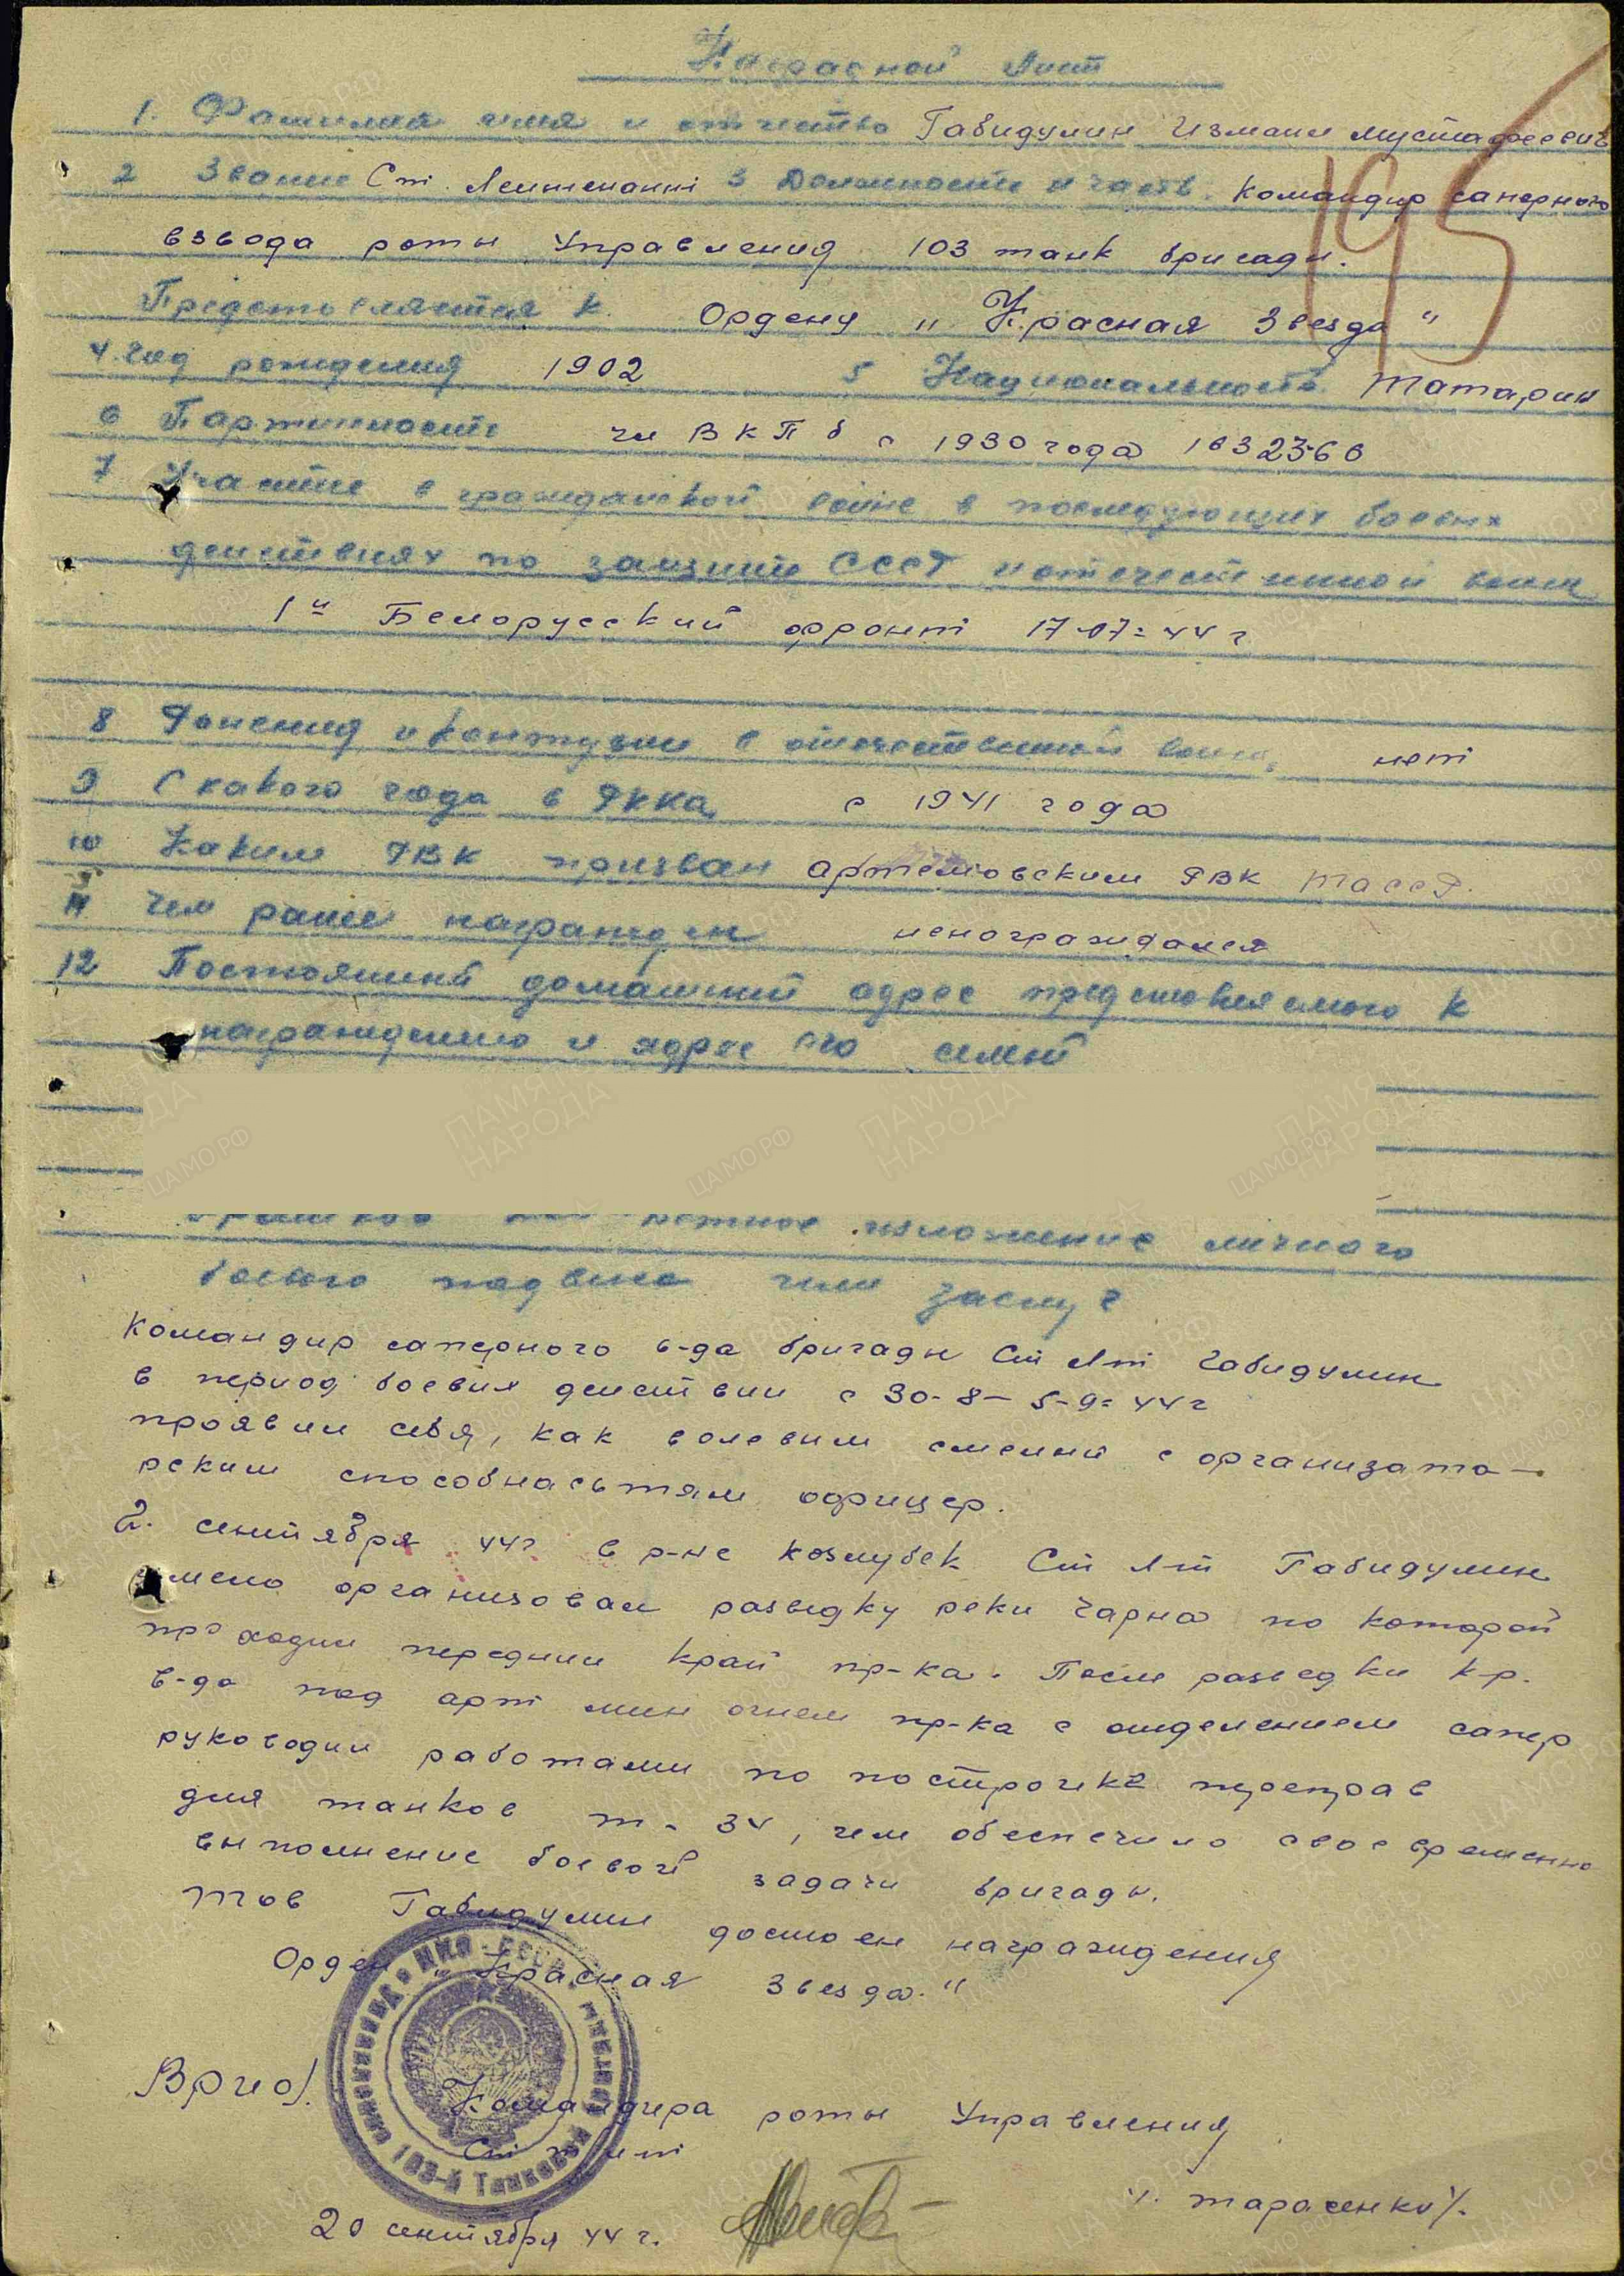 Наградной Лист
1. Фамилия имя и отчество Габидулин Измаил Мустафаевич
2 Звание Ст. Лейтенант 3 Должность и часть. Командир саперного
взвода роты Управления 103 танк бригады.
Представляется к Ордену „Красная Звезда"
4. Год рождения 1902 5 Национальность Татарин
6 Партийность чл ВКП б с 1930 года
7 Участие в гражданской войне в последующих боевых
действиях по защите СССР и отечественной войне
1й Белорусский фронт 17-07-44 г
8 Ранения и контузии в отечественной войне нет
9 С какого года в РККА с 1941 года
10 Каким РВК призван Артемовским РВК ТАССР.
11 Чем ранее награжден ненаграждался
12 Постоянный домашний адрес представляемого к
награждению и адрес его семьи
изложение личного
боевого подвига или заслуг
Командир саперного в-да бригады Ст Л-т Габидулин
в период боевых действии с 30-8-5-9-44 г
проявил себя, как волевым смелый с организато-
рским способнасьтями офицер.
2. сентября 44 г в р-не Козлубек Ст Л-т Габидулин
умело организовал разведку реки Чарна по которой
проходил передний край пр-ка. После разведки к-р.
в-да под арт мин огнем пр-ка с отделением сапер
руководил работами по построике переправ
для танков т-34, чем обеспечило своевременно
выполнение боевой задачи бригады.
Тов Габидулин достоен награждения
Орден „Красная Звезда."
Врио/. Командира роты Управления
Ст л-т
/. Тарасенко/.
20 сентября 44 г.
195
103-я Танковая
ПАМЯТЬ НАРОДА
ЦАМО.РФ